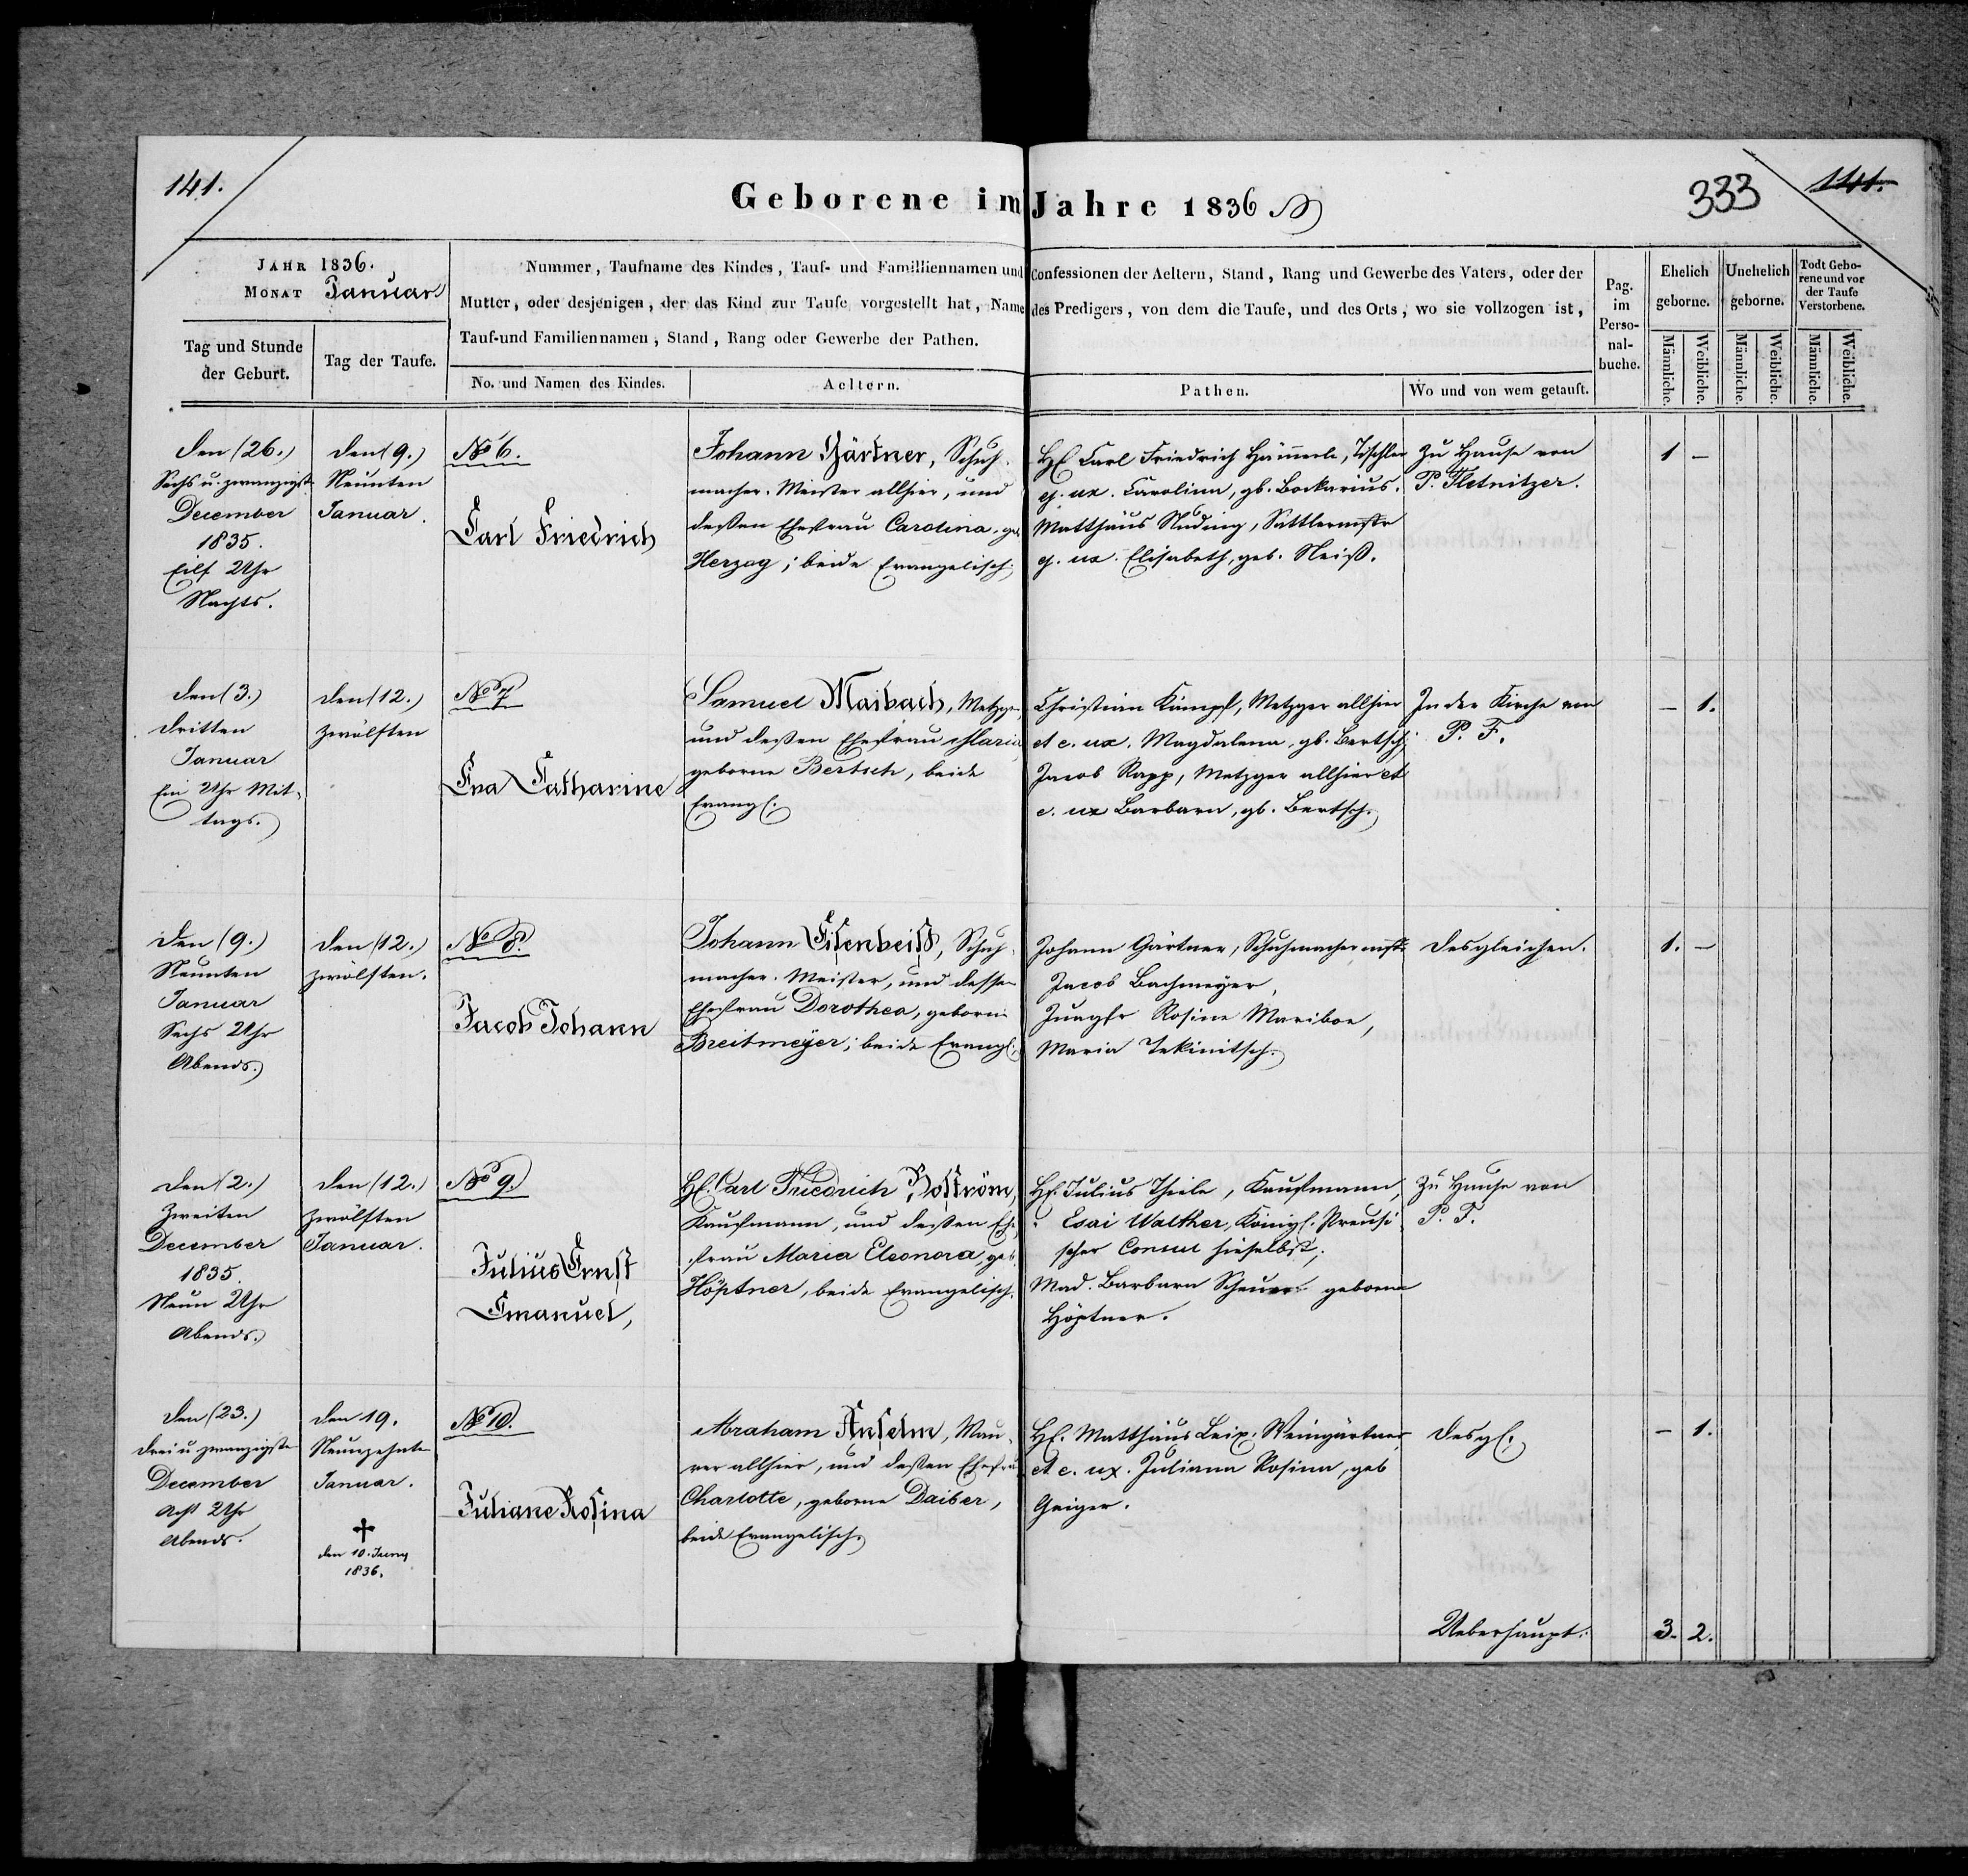 141.
Geborene im Jahre 1836
333
141.
JAHR 1836.
MONAT Januar
Tag und Stunde der Geburt.
Tag der Taufe.
Nummer, Taufname des Kindes, Tauf- und Familliennamen und Confessionen der Aeltern, Stand, Rang und Gewerbe des Vaters, oder der
Mutter, oder desjenigen, der das Kind zur Taufe vorgestellt hat, Name des Predigers, von dem die Taufe, und des Orts, wo sie vollzogen ist,
Tauf-und Familiennamen, Stand, Rang oder Gewerbe der Pathen.
No. und Namen des Kindes.
Aeltern.
Pathen.
Wo und von wem getauft.
Pag. im Perso-nal-buche.
Ehelich geborne.
Unehelich geborne.
Todt Gebo-rene und vor der Taufe Verstorbene.
Männliche.
Weibliche.
Männliche.
Weibliche.
Männliche.
Weibliche.
den (26.)
Sechs u. zwanzigst.
December
1835.
Eilf Uhr
Nachts.
den (9.)
Neunten
Januar.
No 6.
Carl Friedrich
Johann Gärtner, Schuh-
macher-Meister allhier, und
deßen Ehefrau Carolina, geb.
Herzog; beide Evangelisch.
H. Carl Friedrich Hämerle, Tischler
ej. ux. Carolina, gb. Bockarius.
Matthäus Nuding, Sattlermstr
ej. ux. Elisabeth, geb. Neiß.
Zu Hause von
P. Fletnitzer.
1 -
den (3.)
dritten
Januar
Ein Uhr Mit-
tags.
den (12.)
zwölften
No 7
Eva Catharine
Samuel Maibach, Metzger,
und deßen Ehefrau Maria,
geborne Bertsch, beide
Evangl.
Christian Kämpf, Metzger allhier
et e. ux. Magdalena, gb. Bertsch;
Jacob Rapp, Metzger allhier et
e. ux Barbara, gb. Bertsch.
In der Kirche von
P. F.
- 1.
den (9.)
Neunten
Januar
Sechs Uhr
Abends.
den (12.)
zwölften.
No 8.
Jacob Johann
Johann Eisenbeiß, Schuh-
macher-Meister, und dessen
Ehefrau Dorothea, geborne
Breitmeÿer; beide Evangl.
Johann Gärtner, Schuhmachermstr.
Jacob Bachmeyer,
Jungfr Rosine Maribor,
Maria Tekinitsch.
desgleichen.
1. -
den (2.)
Zweiten
December
1835.
Neun Uhr
Abends.
den (12.)
zwölften
Januar.
No 9.
Julius Ernst
Emanuel,
H. Carl Friedrich Boström,
Kaufmann, und deßen Ehe-
frau Maria Eleonora, geb.
Höptner, beide Evangelisch.
H. Julius Theile, Kaufmann,
" Esai Walther, Königl. Preusi-
scher Consul hieselbst;
Mad. Barbara geborne
Höptner.
Zu Hause von
P. F.
den (23.)
drei u. zwanzigste
December
Acht Uhr
Abends.
den 19.
Neunzehnte
Januar.
†
den 10. Juny
1836.
No 10.
Juliane Rosina
Abraham Anselm, Mau-
rer allhier, und deßen Ehefrau
Charlotte, geborne Daiber,
beide Evangelisch.
H. Matthäus Leix. Weingärtner
et e. ux. Juliana Rosina, geb
Geiger.
desgl.
- 1.
Ueberhaupt: 3. 2.